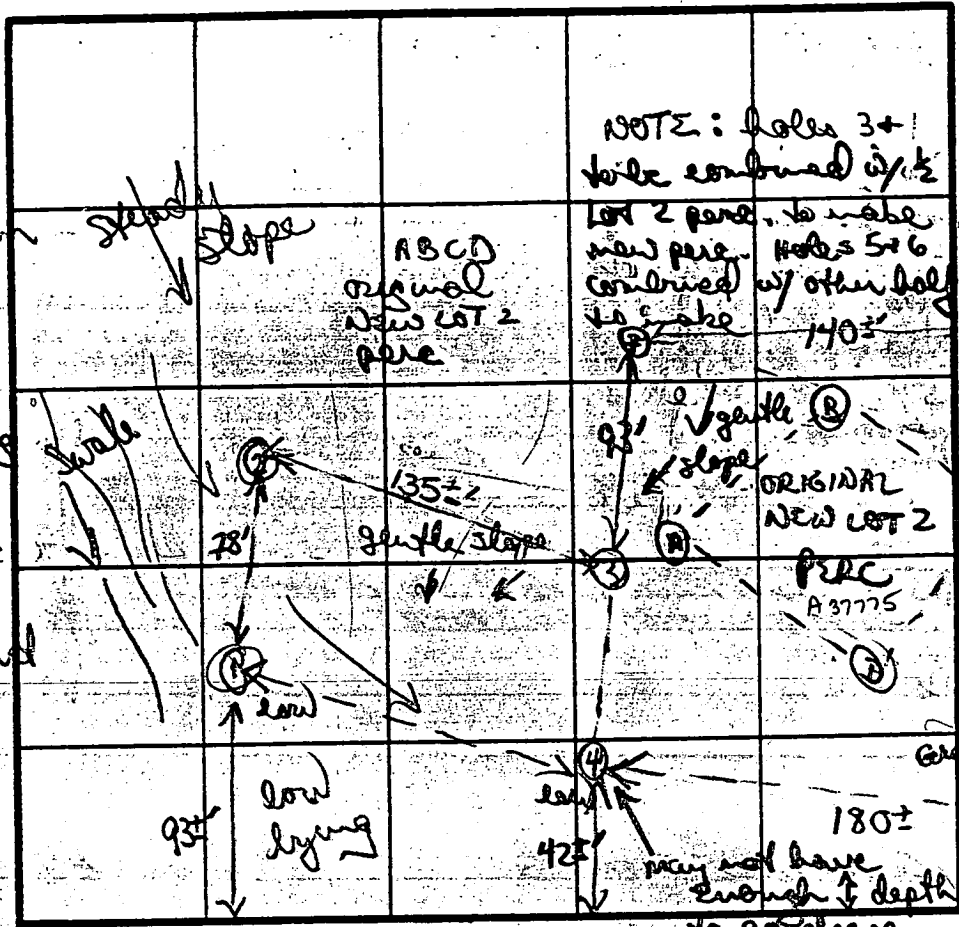 NOTE: holes 3+1
to be combined w/ ½
LOT 2 perc. to make
new perc. Holes 5+6
combined w/ other half
to make
140±'
Steady
Slope
ABCD
original
NEW LOT 2
perc
Swale
B
93'
gentle
slope
135±'
ORIGINAL
NEW LOT 2
PERC
A37775
A
78'
gentle slope
3
D
1
low
4
low
low
lying
93±'
42±'
180±
may not have
enough depth